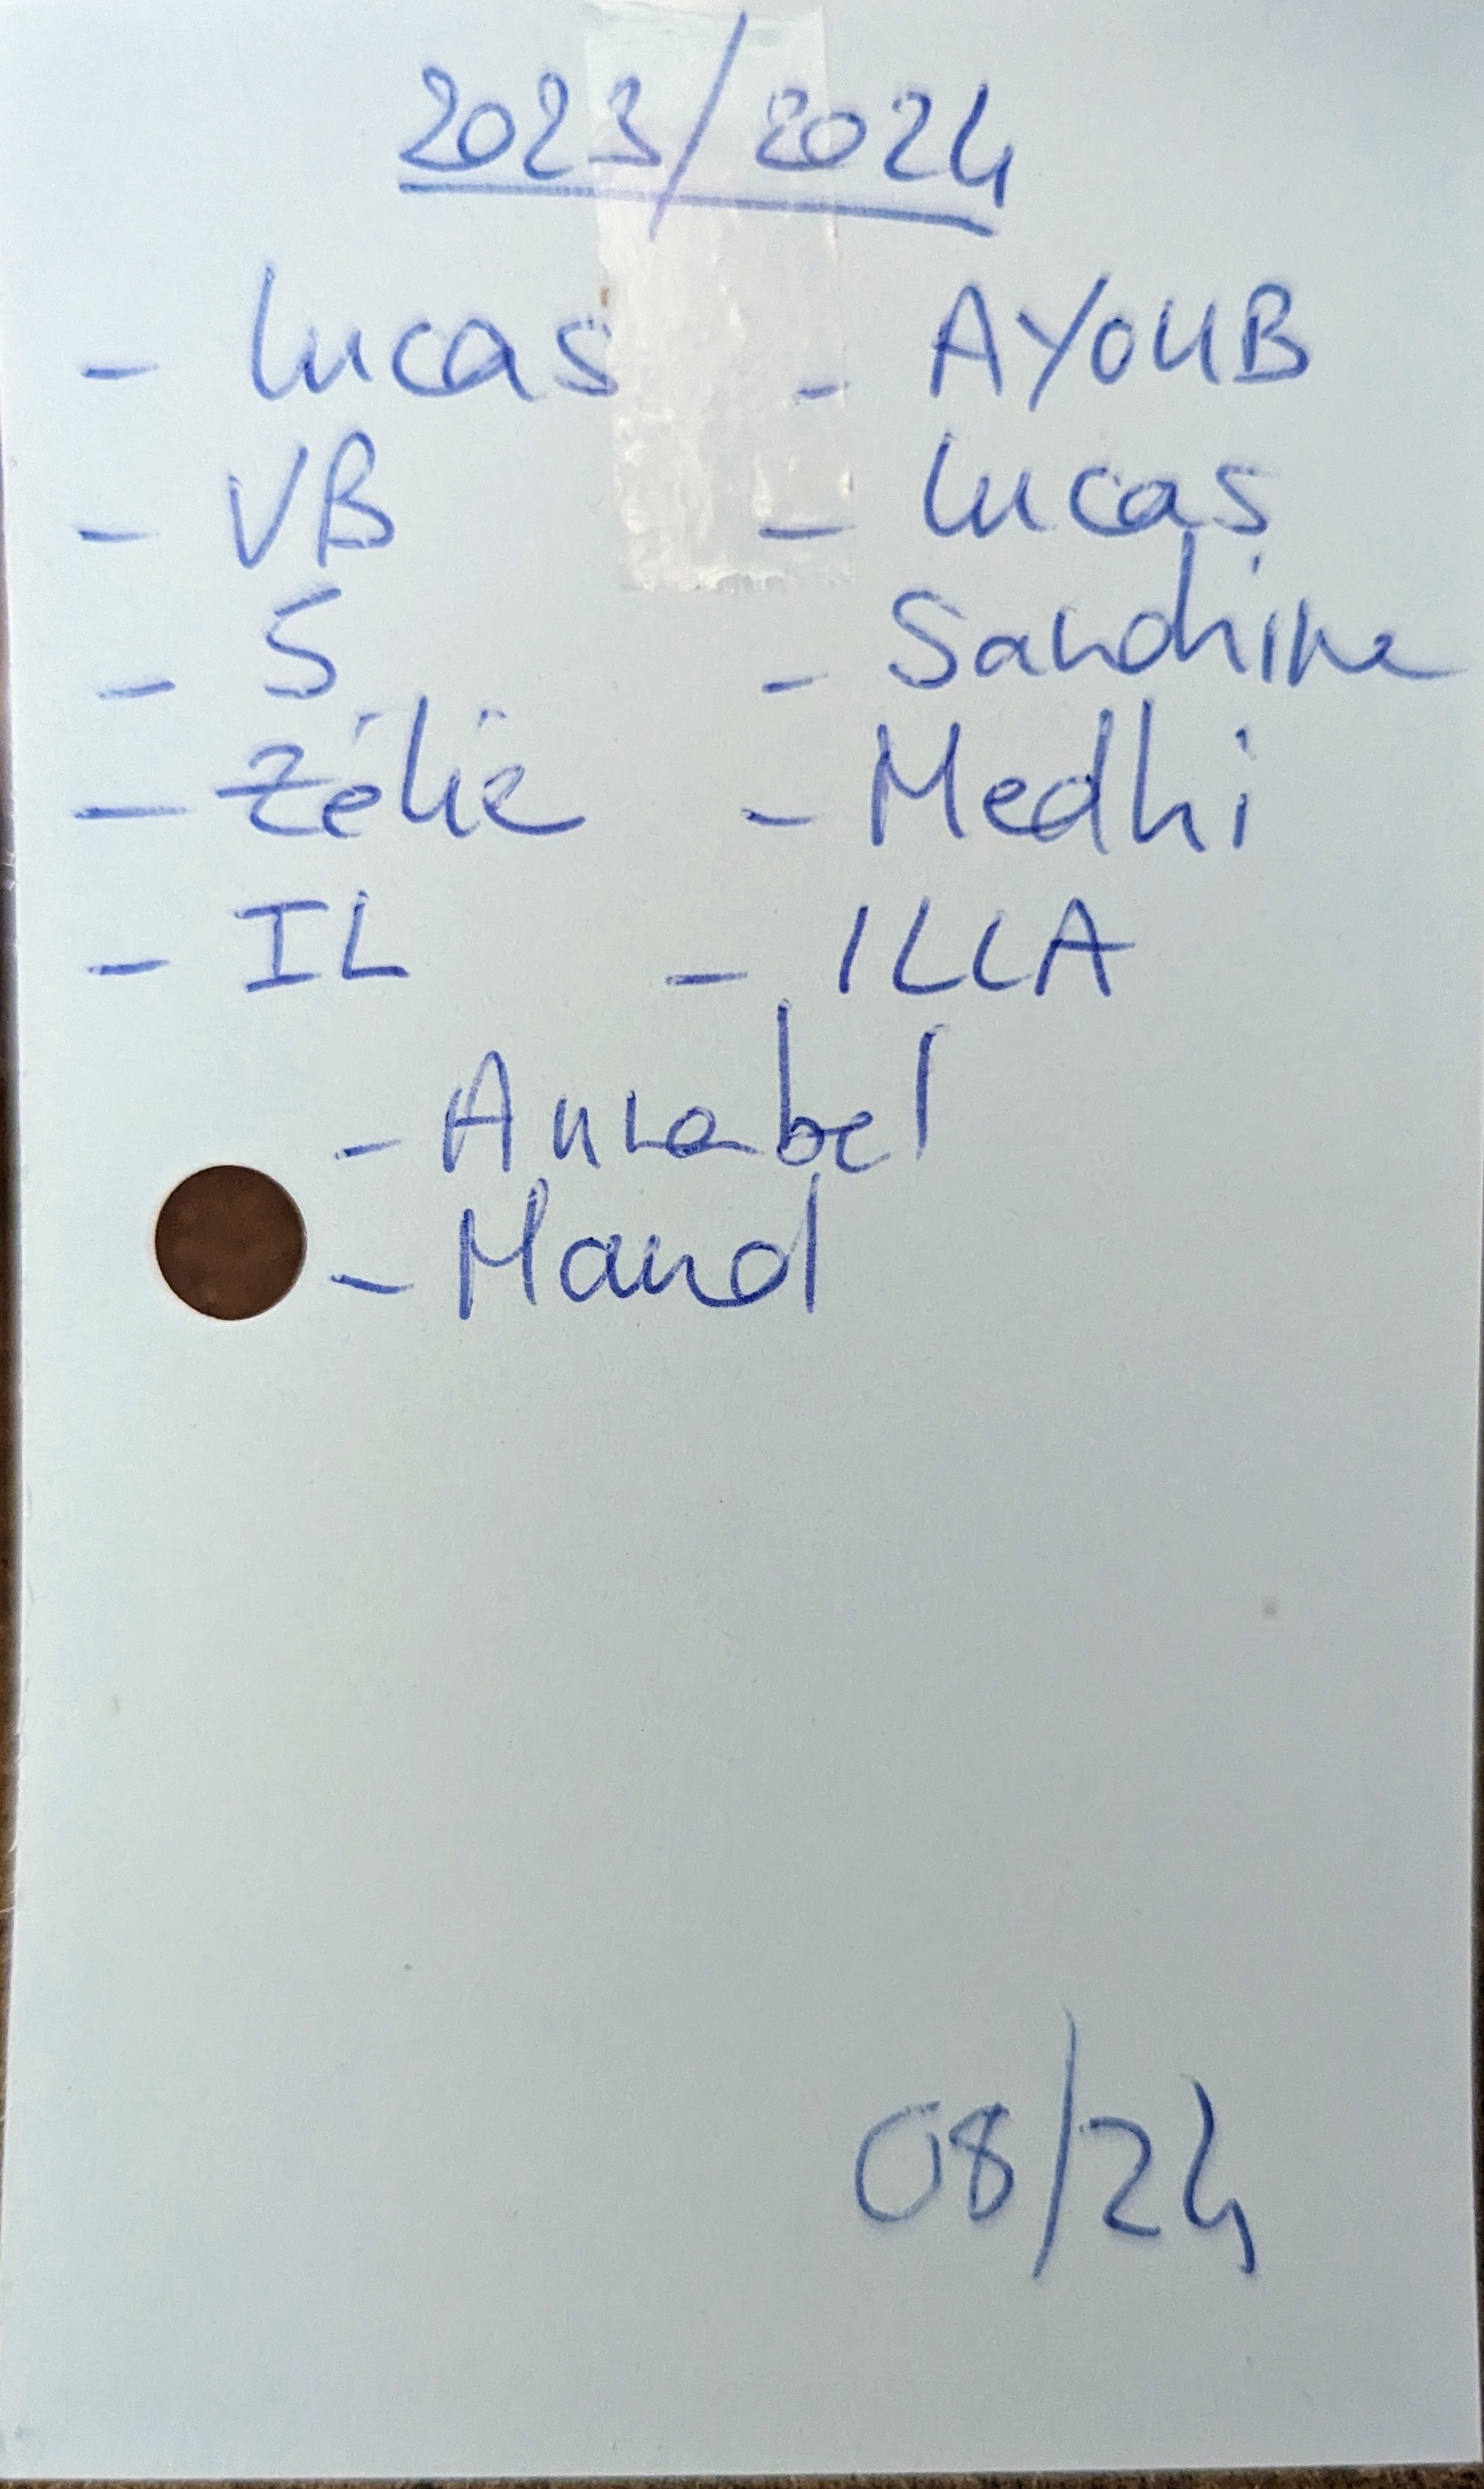 2023/2024
- Lucas - AYOUB
- VB - Lucas
- S - Sandrine
- Zélie - Medhi
- IL - ILLA
- Annabel
- Maud
08/24